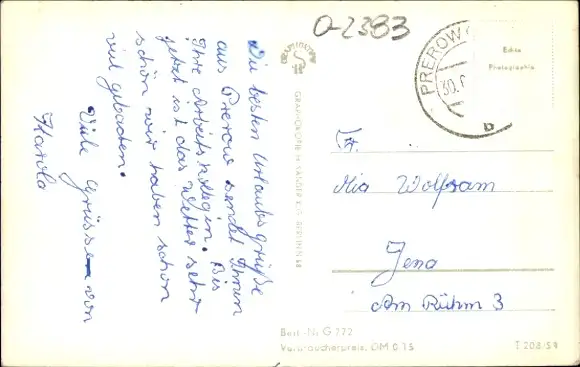 Die besten Urlaubsgrüße
aus Prerow sendet Ihnen
Ihre Arbeitskollegin. Bis
jetzt ist das Wetter sehr
schön wir haben schon
viel gebaden.
Viele Grüsse von
Karola
GRAPHOKOPIE H. SANDER K.G. BERLIN N 58
0-2383
PREROW
30.
b
Echte
Photographie
Mia Wolfram
Jena
Am Rähm 3
Best.-Nr. G 272
Verbraucherpreis: DM 0.15
T 208/58